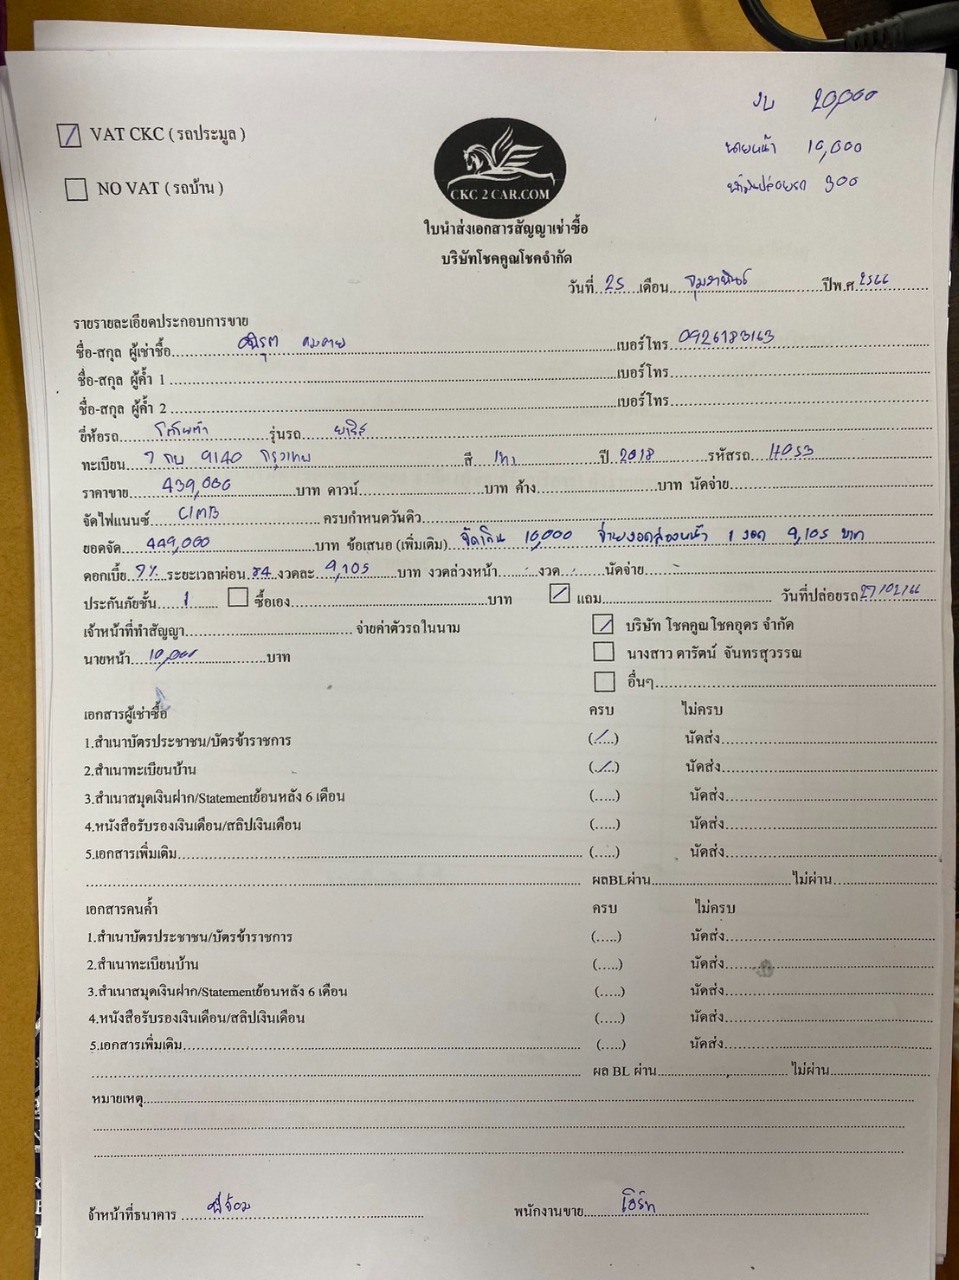 งบ 20,000
VAT CKC ( รถประมูล )
นายหน้า 10,000
NO VAT ( รถบ้าน )
น้ำมันปล่อยรถ 300
CKC 2 CAR.COM
ใบนำส่งเอกสารสัญญาเช่าซื้อ
บริษัทโชคคูณโชคจำกัด
วันที่ 25 เดือน กุมภาพันธ์ ปีพ.ศ. 2566
รายรายละเอียดประกอบการขาย
ชื่อ-สกุล ผู้เช่าซื้อ เบอร์โทร 0926183163
ชื่อ-สกุล ผู้ค้ำ 1 เบอร์โทร
ชื่อ-สกุล ผู้ค้ำ 2 เบอร์โทร
ยี่ห้อรถ โตโยต้า รุ่นรถ ยาริส
ทะเบียน 7 กบ 9140 กรุงเทพ สี เทา ปี 2018 รหัสรถ H053
ราคาขาย 439,000 บาท ดาวน์ บาท ค้าง บาท นัดจ่าย
จัดไฟแนนซ์ CIMB ครบกำหนดวันคิว
ยอดจัด 449,000 บาท ข้อเสนอ (เพิ่มเติม) จัดเกิน 10,000 จ่ายงวดล่วงหน้า 1 งวด 9,105 บาท
ดอกเบี้ย 9% ระยะเวลาผ่อน 84 งวดละ 9,105 บาท งวดล่วงหน้า งวด นัดจ่าย
ประกันภัยชั้น 1 ซื้อเอง บาท แถม วันที่ปล่อยรถ 27/02/66
เจ้าหน้าที่ทำสัญญา จ่ายค่าตัวรถในนาม บริษัท โชคคูณโชคอุดร จำกัด
นายหน้า 10,000 บาท นางสาว ดารัตน์ จันทรสุวรรณ
อื่นๆ
เอกสารผู้เช่าซื้อ ครบ ไม่ครบ
1.สำเนาบัตรประชาชน/บัตรข้าราชการ (.....) นัดส่ง
2.สำเนาทะเบียนบ้าน (.....) นัดส่ง
3.สำเนาสมุดเงินฝาก/Statementย้อนหลัง 6 เดือน (.....) นัดส่ง
4.หนังสือรับรองเงินเดือน/สลิปเงินเดือน (.....) นัดส่ง
5.เอกสารเพิ่มเติม (.....) นัดส่ง
ผลBLผ่าน ไม่ผ่าน
เอกสารคนค้ำ ครบ ไม่ครบ
1.สำเนาบัตรประชาชน/บัตรข้าราชการ (.....) นัดส่ง
2.สำเนาทะเบียนบ้าน (.....) นัดส่ง
3.สำเนาสมุดเงินฝาก/Statementย้อนหลัง 6 เดือน (.....) นัดส่ง
4.หนังสือรับรองเงินเดือน/สลิปเงินเดือน (.....) นัดส่ง
5.เอกสารเพิ่มเติม (.....) นัดส่ง
ผล BL ผ่าน ไม่ผ่าน
หมายเหตุ
จ้าหน้าที่ธนาคาร พนักงานขาย